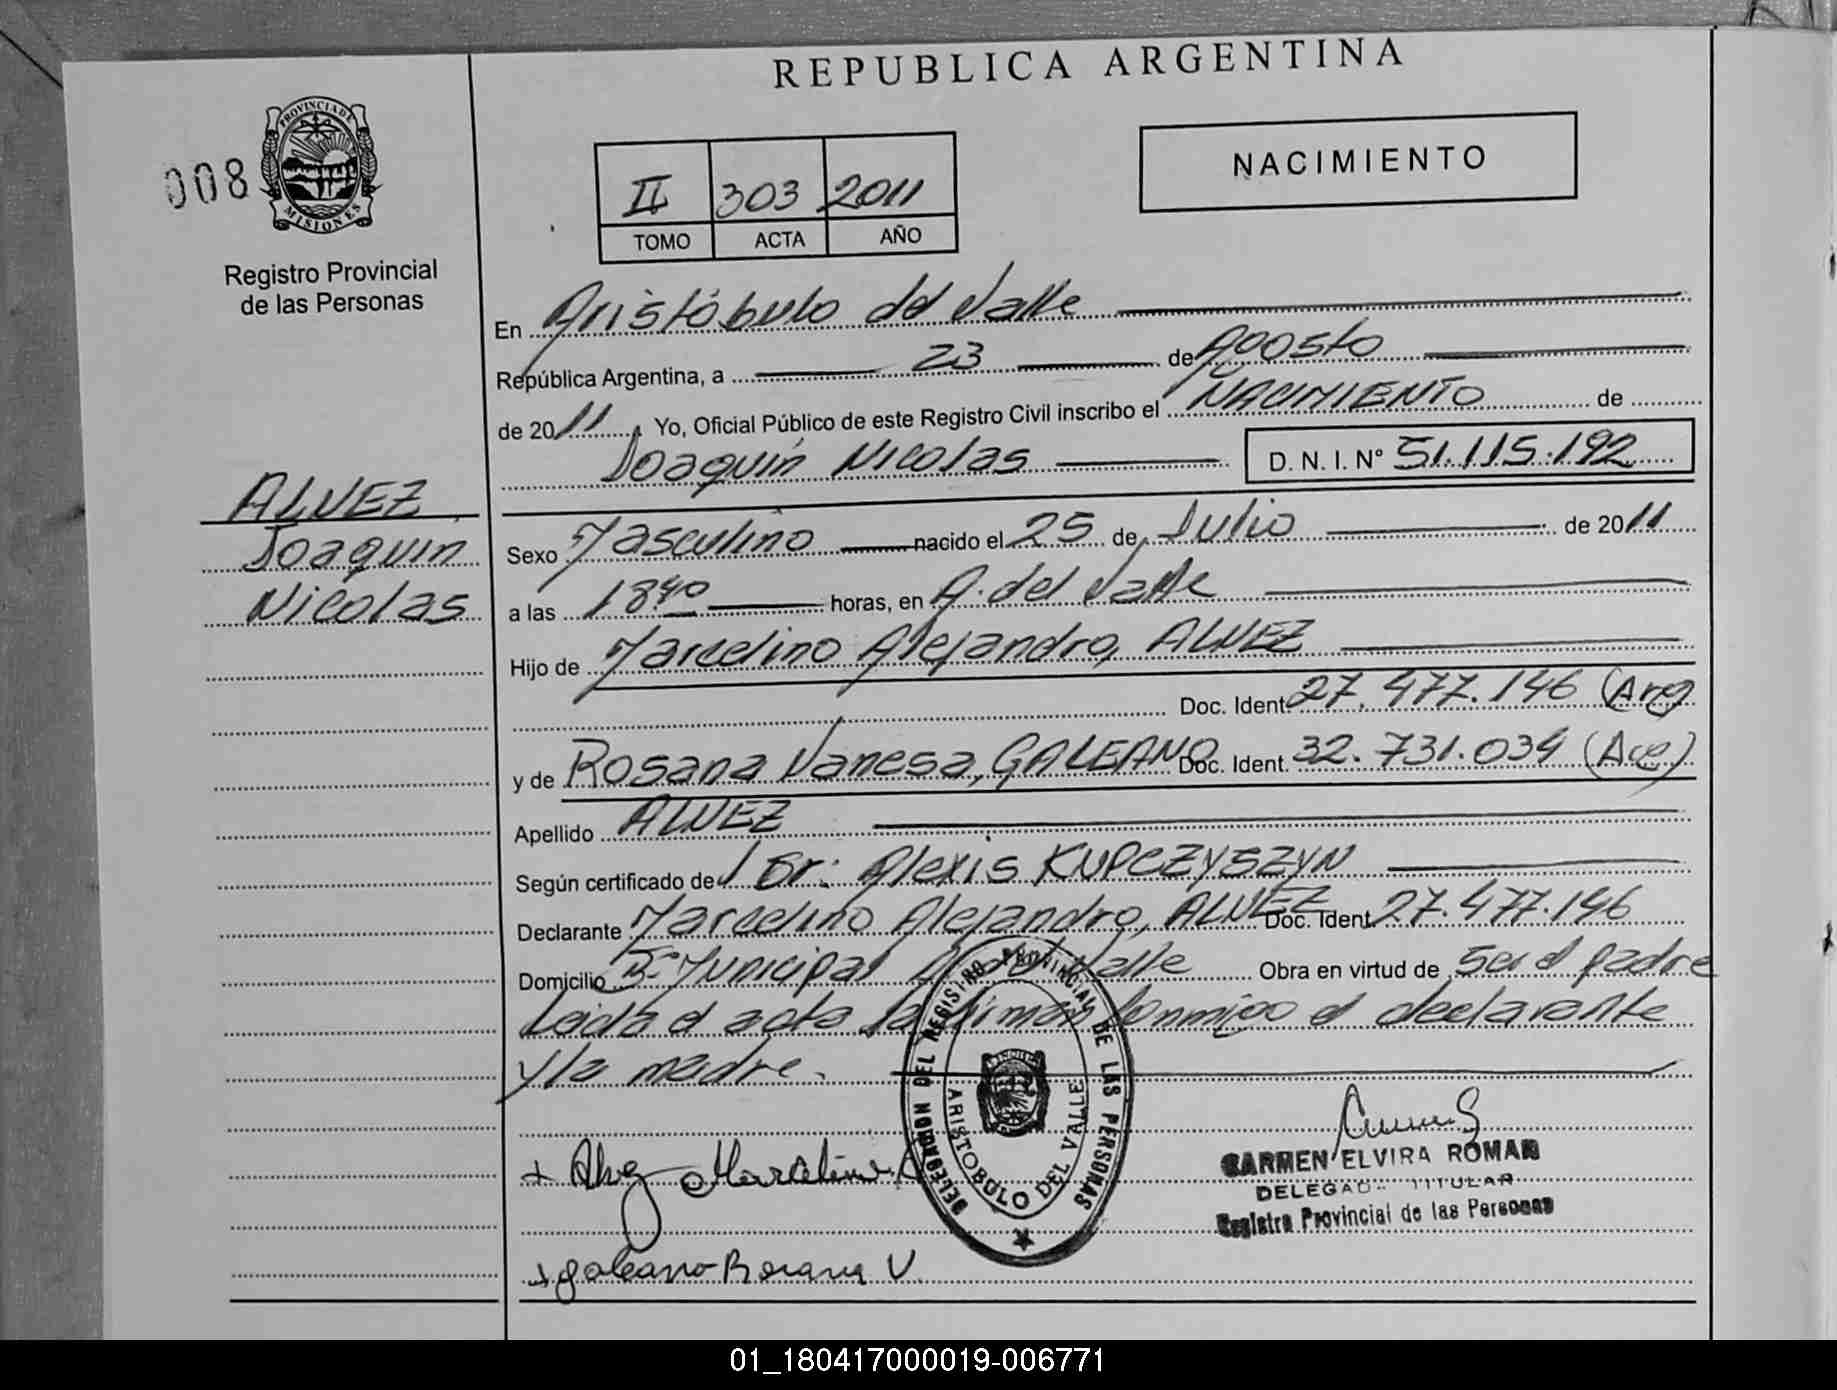 REPUBLICA ARGENTINA
008
PROVINCIA DE MISIONES
Registro Provincial
de las Personas
II 303 2011
TOMO ACTA AÑO
NACIMIENTO
En Aristóbulo del Valle
República Argentina, a 23 de Agosto
de 2011. Yo, Oficial Público de este Registro Civil inscribo el NACIMIENTO de
Joaquín Nicolas D. N. I. Nº 51.115.192
ALVEZ
Joaquín
Nicolas
Sexo Masculino nacido el 25 de Julio de 2011
a las 18 40 horas, en A. del Valle
Hijo de Marcelino Alejandro, ALVEZ
Doc. Ident. 27.477.146 (Arg
y de Rosana Vanesa, GALEANO Doc. Ident. 32.731.034
Apellido ALVEZ
Según certificado de Dr: Alexis KUPCZYSZYN
Declarante Marcelino Alejandro, ALVEZ Doc. Ident. 27.477.146
Domicilio Bº Municipal A. del Valle Obra en virtud de ser el padre
Leida el acta la firman conmigo el declarante
y la madre.
DELEGACION DEL REGISTRO PROVINCIAL DE LAS PERSONAS
ARISTOBULO DEL VALLE
CARMEN ELVIRA ROMAN
DELEGADA TITULAR
Registro Provincial de las Personas
+ Alvez Marcelino A
+ galeano Rosana V.
01_180417000019-006771